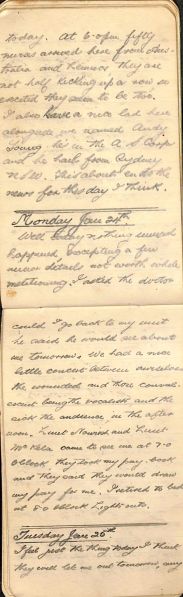 today. At 6.0pm fifty
nurses arrived here from Aus-
tralia and Lemnos, they are
not half kicking up a row so
excited they seem to be too.
I also have a nice lad here
alongside me named Andy
Young, he's in the A S Corps
and he hails from Sydney
N S W. This about ends the
news for this day I think.
Monday Jan 24th
Well today nothing unusual
happened excepting a few
minor details not worth while
mentioning. I asked the doctor
could I go back to my unit
he said he would see about
me tomorrow. We had a nice
little concert between ourselves
the wounded and those conval-
escent being the vocalists and the
sick the audience in the after
noon. Lieut and Lieut
Mc came to see me at 7.0
O'clock, they took my pay book
and they said they would draw
my pay for me. I retired to bed
at 8.0 o'clock Lights out.
Tuesday Jan 25th
I feel just the thing today I think
they will let me out tomorrow, any